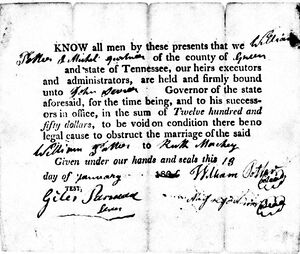 KNOW all men by these presents that we William
of the county of Green
and state of Tennessee, our heirs executors
and administrators, are held and firmly bound
unto John Sevier Governor of the state
aforesaid, for the time being, and to his success-
ors in office, in the sum of Twelve hundred and
fifty dollars, to be void on condition there be no
legal cause to obstruct the marriage of the said
William to Ruth
Given under our hands and seals this 18
day of January William
TEST,
Giles